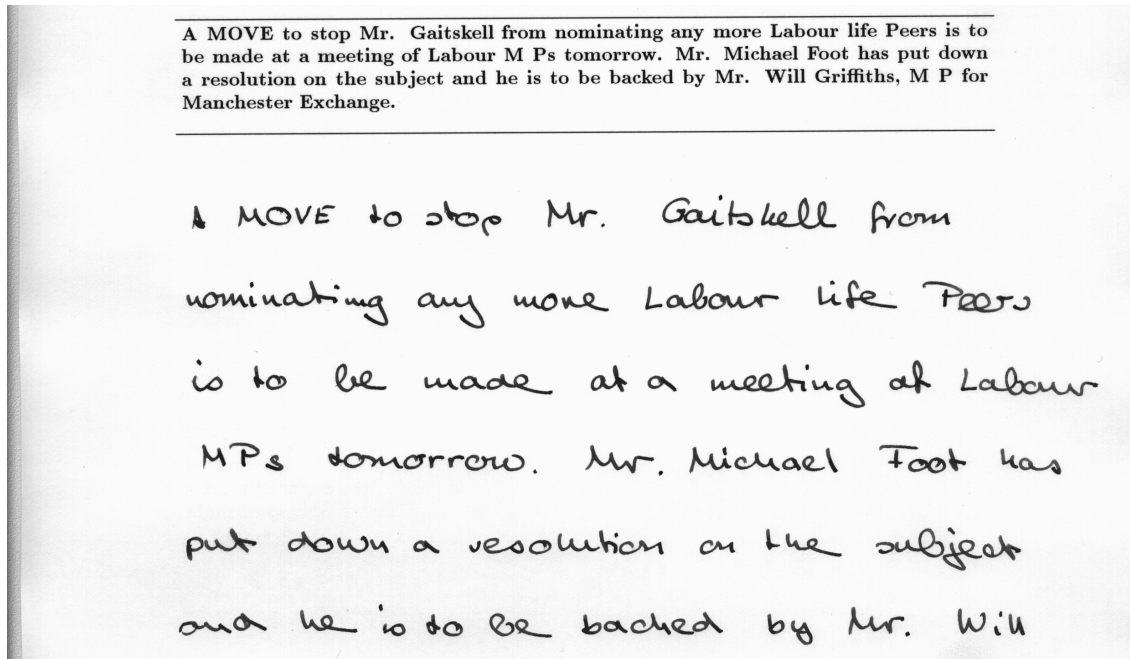 A MOVE to stop Mr. Gaitskell from nominating any more Labour life Peers is to
be made at a meeting of Labour M Ps tomorrow. Mr. Michael Foot has put down
a resolution on the subject and he is to be backed by Mr. Will Griffiths, M P for
Manchester Exchange.
A MOVE to stop Mr. Gaitskell from
nominating any more Labour life Peers
is to be made at a meeting of Labour
MPs tomorrow. Mr. Michael Foot has
put down a resolution on the subject
and he is to be backed by Mr. Will